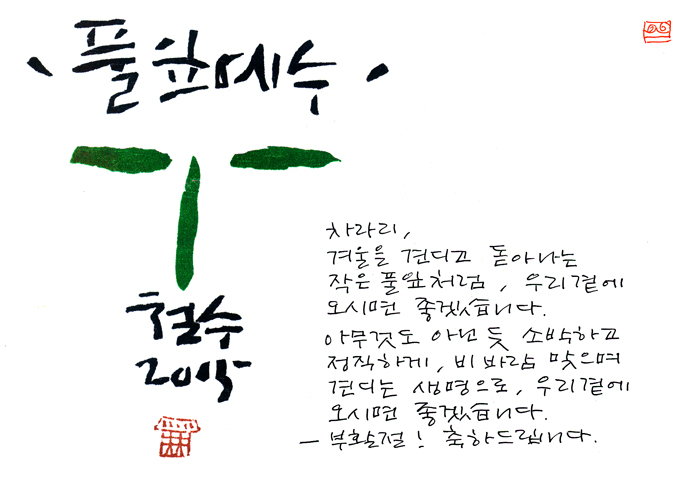 · 풀잎예수 ·
철수
2015
차라리,
겨울을 견디고 돋아나는
작은 풀잎처럼, 우리곁에
오시면 좋겠습니다.
아무것도 아닌 듯 소박하고
정직하게, 비 바람 맞으며
견디는 생명으로, 우리곁에
오시면 좋겠습니다.
— 부활절! 축하드립니다.